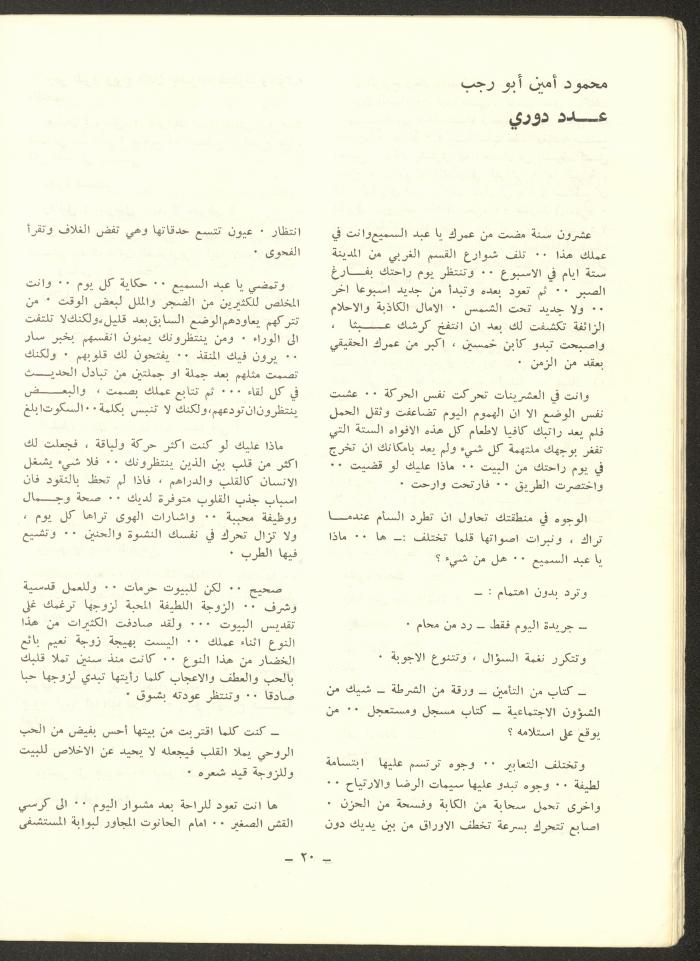 محمود أمين أبو رجب
عـــدد دوري
عشرون سنة مضت من عمرك يا عبد السميع وانت في
عملك هذا ٠٠ تلف شوارع القسم الغربي من المدينة
ستة ايام في الاسبوع ٠٠ وتنتظر يوم راحتك بفــارغ
الصبر ٠٠ ثم تعود بعده وتبدأ من جديد اسبوعا اخر
٠٠ ولا جديد تحت الشمس ٠ الامال الكاذبة والاحلام
الزائفة تكشفت لك بعد ان انتفخ كرشك عـــبثا ،
واصبحت تبدو كابن خمسين ، اكبر من عمرك الحقيقي
بعقد من الزمن ٠
وانت في العشرينات تحركت نفس الحركة ٠٠ عشت
نفس الوضع الا ان الهموم اليوم تضاعفت وثقل الحمل
فلم يعد راتبك كافيا لاطعام كل هذه الافواه الستة التي
تفغر بوجهك ملتهمة كل شيء ولم يعد بامكانك ان تخرج
في يوم راحتك من البيت ٠٠ ماذا عليك لو قضيت ٠٠
واختصرت الطريق ٠٠ فارتحت وارحت ٠
الوجوه في منطقتك تحاول ان تطرد السأم عندمــا
تراك ، ونبرات اصواتها قلما تختلف :ــ ها ٠٠ ماذا
يا عبد السميع ٠٠ هل من شيء ؟
وترد بدون اهتمام : ــ
ــ جريدة اليوم فقط ــ رد من محام ٠
وتتكرر نغمة السؤال ، وتتنوع الاجوبة ٠
ــ كتاب من التأمين ــ ورقة من الشرطة ــ شيك من
الشؤون الاجتماعية ــ كتاب مسجل ومستعجل ٠٠ من
يوقع على استلامه ؟
وتختلف التعابير ٠٠ وجوه ترتسم عليها ابتسامة
لطيفة ٠٠ وجوه تبدو عليها سيمات الرضا والارتياح ٠٠
واخرى تحمل سحابة من الكابة وفسحة من الحزن ٠
اصابع تتحرك بسرعة تخطف الاوراق من بين يديك دون
انتظار ٠ عيون تتسع حدقاتها وهي تفض الغلاف وتقرأ
الفحوى ٠
وتمضي يا عبد السميع ٠٠ حكاية كل يوم ٠٠ وانت
المخلص للكثيرين من الضجر والملل لبعض الوقت ٠ من
تتركهم يعاودهم الوضع السابق بعد قليل، ولكنك لا تلتفت
الى الوراء ٠ ومن ينتظرونك يمنون انفسهم بخبر سار
٠٠ يرون فيك المنقذ ٠٠ يفتحون لك قلوبهم ٠ ولكنك
تصمت مثلهم بعد جملة او جملتين من تبادل الحديـــث
في كل لقاء ٠٠٠ ثم تتابع عملك بصمت ، والبعــــض
ينتظرون ان تودعهم، ولكنك لا تنبس بكلمة ٠٠ السكوت ابلغ
ماذا عليك لو كنت اكثر حركة ولياقة ، فجعلت لك
اكثر من قلب بين الذين ينتظرونك ٠٠ فلا شيء يشغل
الانسان كالقلب والدراهم ، فاذا لم تحظ بالنقود فان
اسباب جذب القلوب متوفرة لديك ٠٠ صحة وجــمال
ووظيفة محببة ٠٠ واشارات الهوى تراها كل يوم ،
ولا تزال تحرك في نفسك النشوة والحنين ٠٠ وتشيع
فيها الطرب ٠
صحيح ٠٠ لكن للبيوت حرمات ٠٠ وللعمل قدسية
وشرف ٠٠ الزوجة اللطيفة المحبة لزوجها ترغمك على
تقديس البيوت ٠٠٠ ولقد صادفت الكثيرات من هذا
النوع اثناء عملك ٠٠ اليست بهيجة زوجة نعيم بائع
الخضار من هذا النوع ٠٠ كانت منذ سنين تملا قلبك
بالحب والعطف والاعجاب كلما رأيتها تبدي لزوجها حبا
صادقا ٠٠ وتنتظر عودته بشوق ٠
ــ كنت كلما اقتربت من بيتها أحس بفيض من الحب
الروحي يملا القلب فيجعله لا يحيد عن الاخلاص للبيت
وللزوجة قيد شعره ٠
ها انت تعود للراحة بعد مشوار اليوم ٠٠ الى كرسي
القش الصغير ٠٠ امام الحانوت المجاور لبوابة المستشفى
ــ ٢٠ ــ